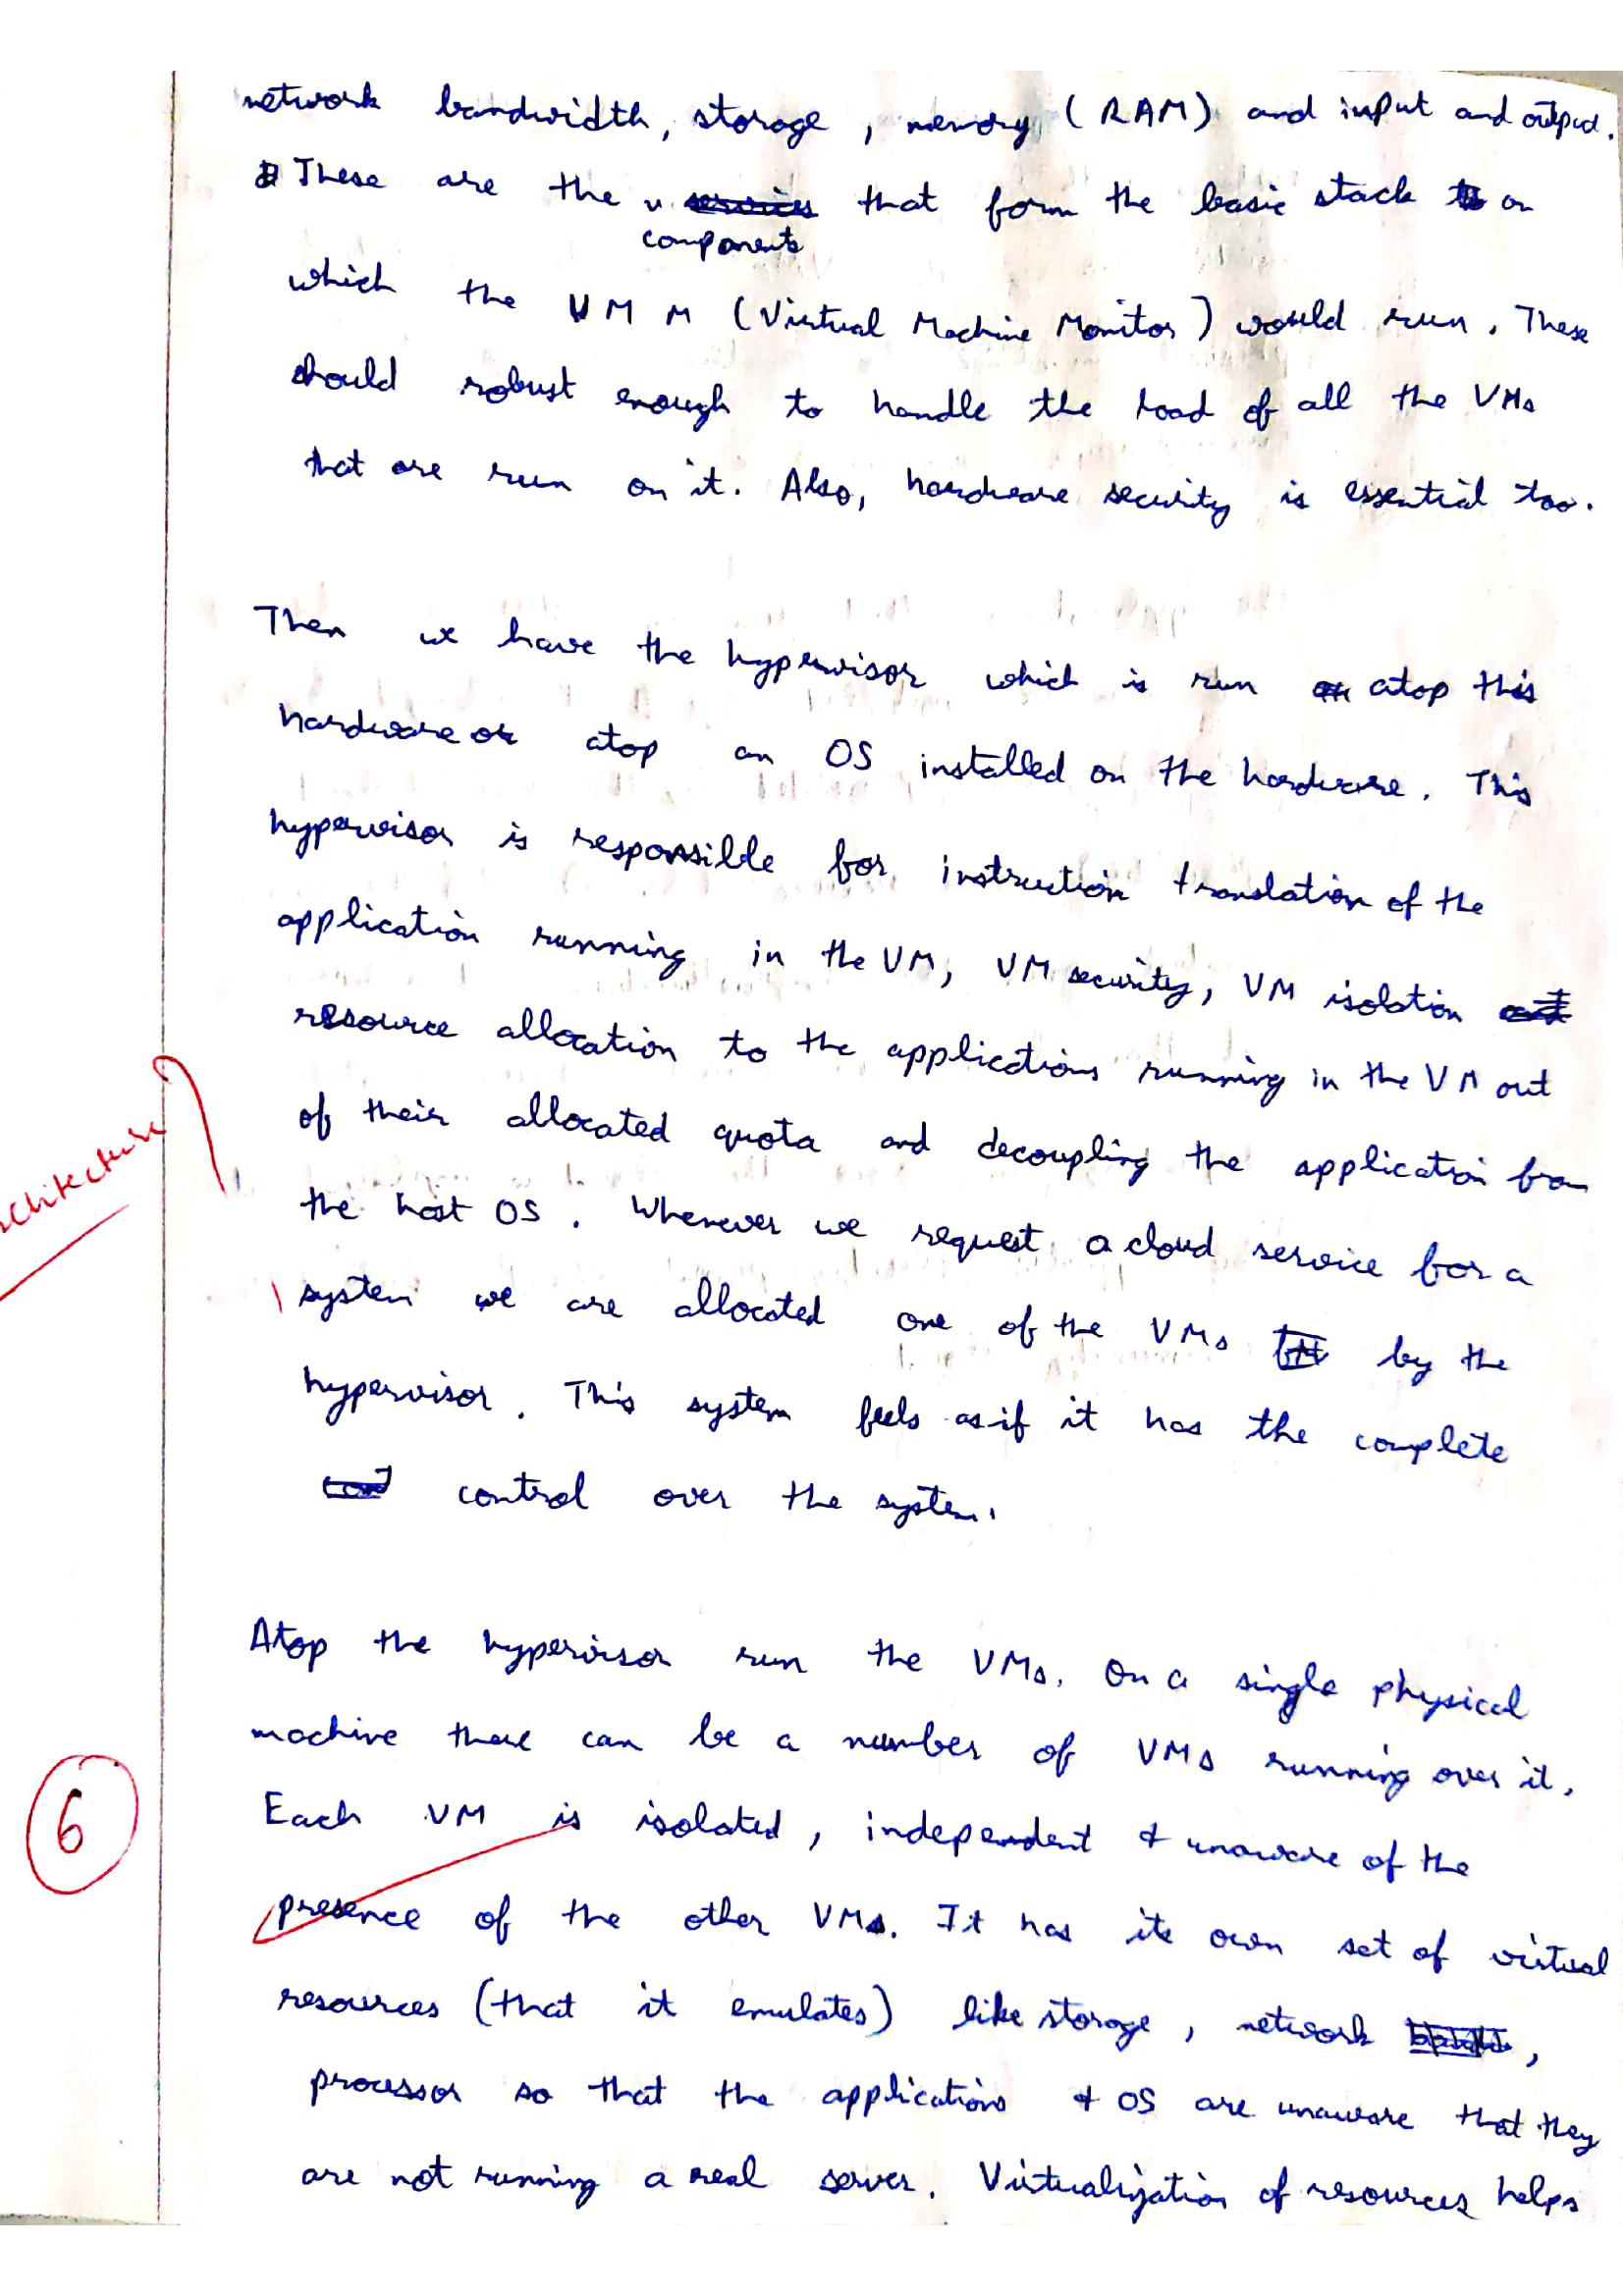 network bandwidth, storage, memory (RAM) and input and output.
These are the components that form the basic stack on
which the VMM (Virtual Machine Monitor) would run. These
should robust enough to handle the load of all the VMs
that are run on it. Also, hardware security is essential too.
Then we have the hypervisor which is run atop this
hardware or atop an OS installed on the hardware. This
hypervisor is responsible for instruction translation of the
application running in the VM, VM security, VM isolation
resource allocation to the applications running in the VM out
of their allocated quota and decoupling the application from
the host OS. Whenever we request a cloud service for a
system we are allocated one of the VMs by the
hypervisor. This system feels as if it has the complete
control over the system.
Atop the hypervisor run the VMs. On a single physical
machine there can be a number of VMs running over it.
Each VM is isolated, independent & unaware of the
presence of the other VMs. It has its own set of virtual
resources (that it emulates) like storage, network,
processor so that the applications & OS are unaware that they
are not running a real server. Virtualization of resources helps
rchitecture
6